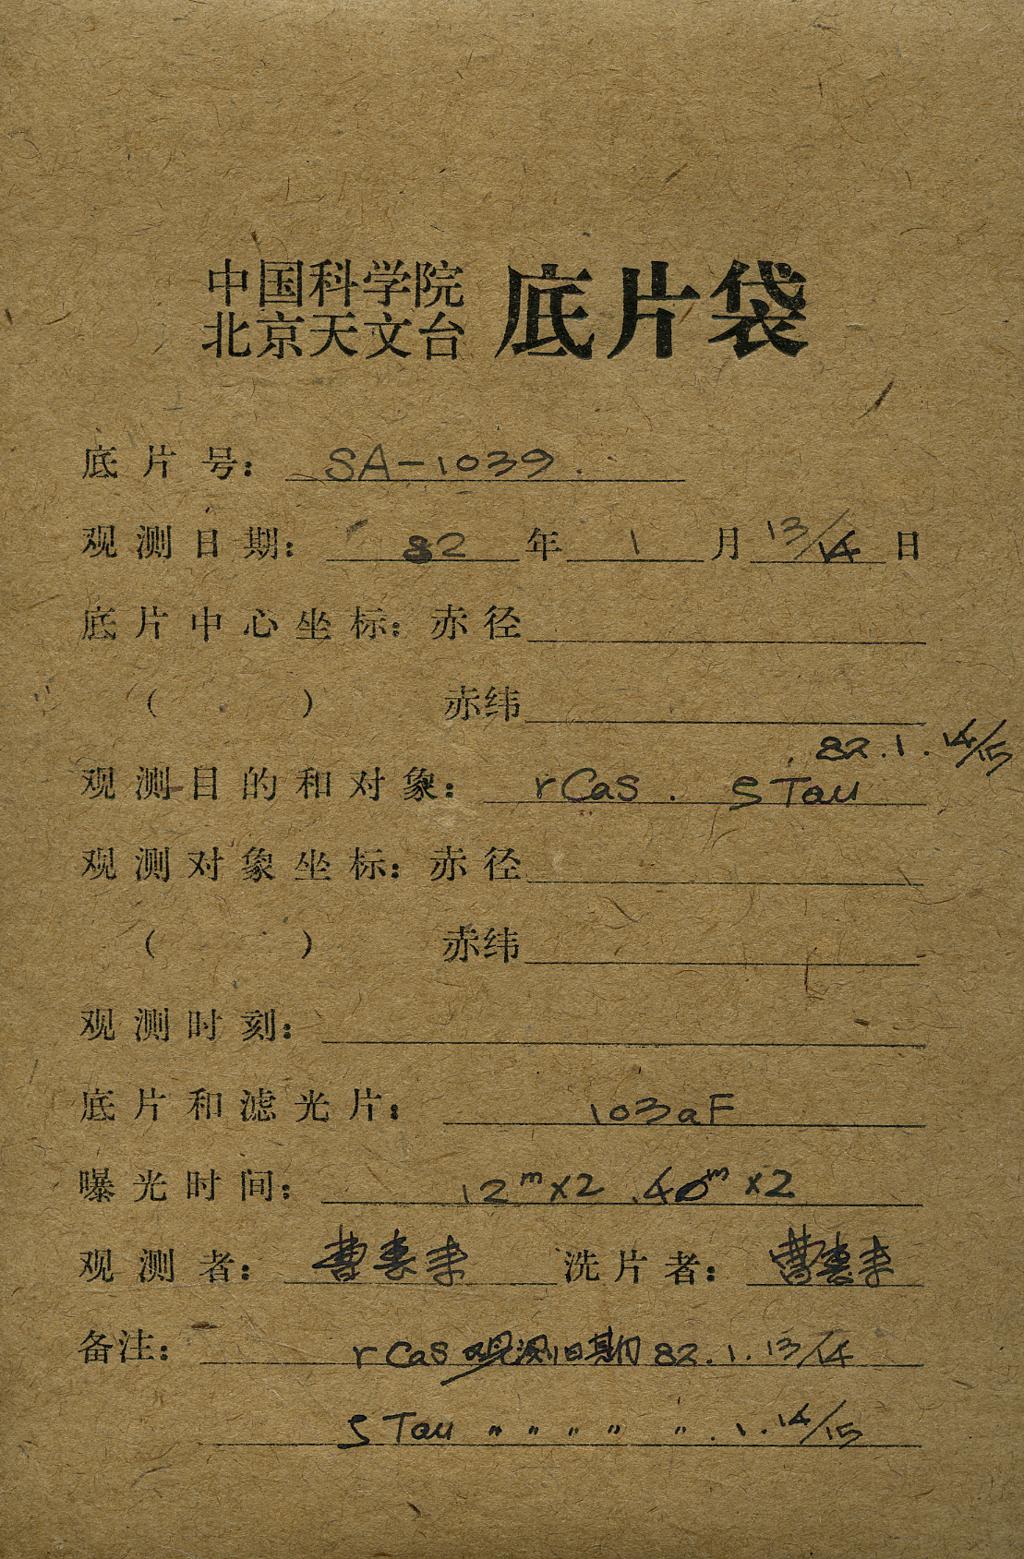 中国科学院
北京天文台 底片袋
底片号: SA-1039.
观测日期: 82年1月13/14日
底片中心坐标: 赤径
( ) 赤纬
82.1.14/15
观测目的和对象: rCas. ζ Tau
观测对象坐标: 赤径
( ) 赤纬
观测时刻:
底片和滤光片: 103aF
曝光时间: 12ᵐx2 .40ᵐx2
观测者: 曹 洗片者: 曹
备注: rCas 观测日期 82.1.13/14
ζ Tau 〃 〃 〃 〃 〃 .1.14/15